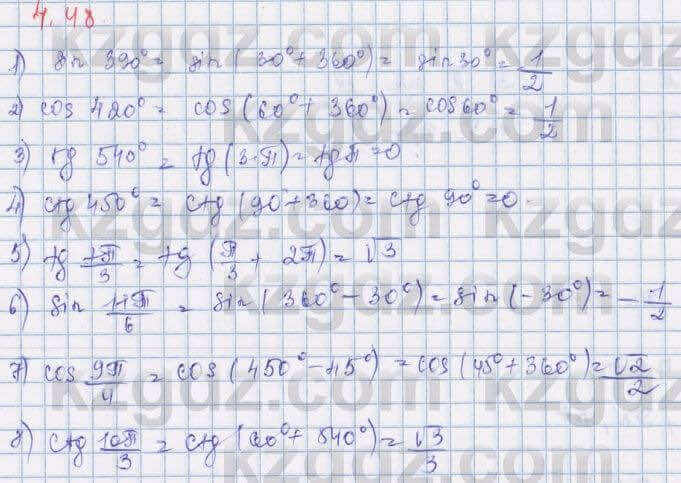 4.48
1) sin 390° = sin (30° + 360°) = sin 30° = 1/2
2) cos 420° = cos (60° + 360°) = cos 60° = 1/2
3) tg 540° = tg (3·π) = tg π = 0
4) ctg 450° = ctg (90° + 360) = ctg 90° = 0.
5) tg 7π/3 = tg (π/3 + 2π) = √3
6) sin 11π/6 = sin (360° − 30°) = sin (−30°) = −1/2
7) cos 9π/4 = cos (450° − 45°) = cos (45° + 360°) = √2/2
8) ctg 10π/3 = ctg (60° + 540°) = √3/3
kzgdz.com